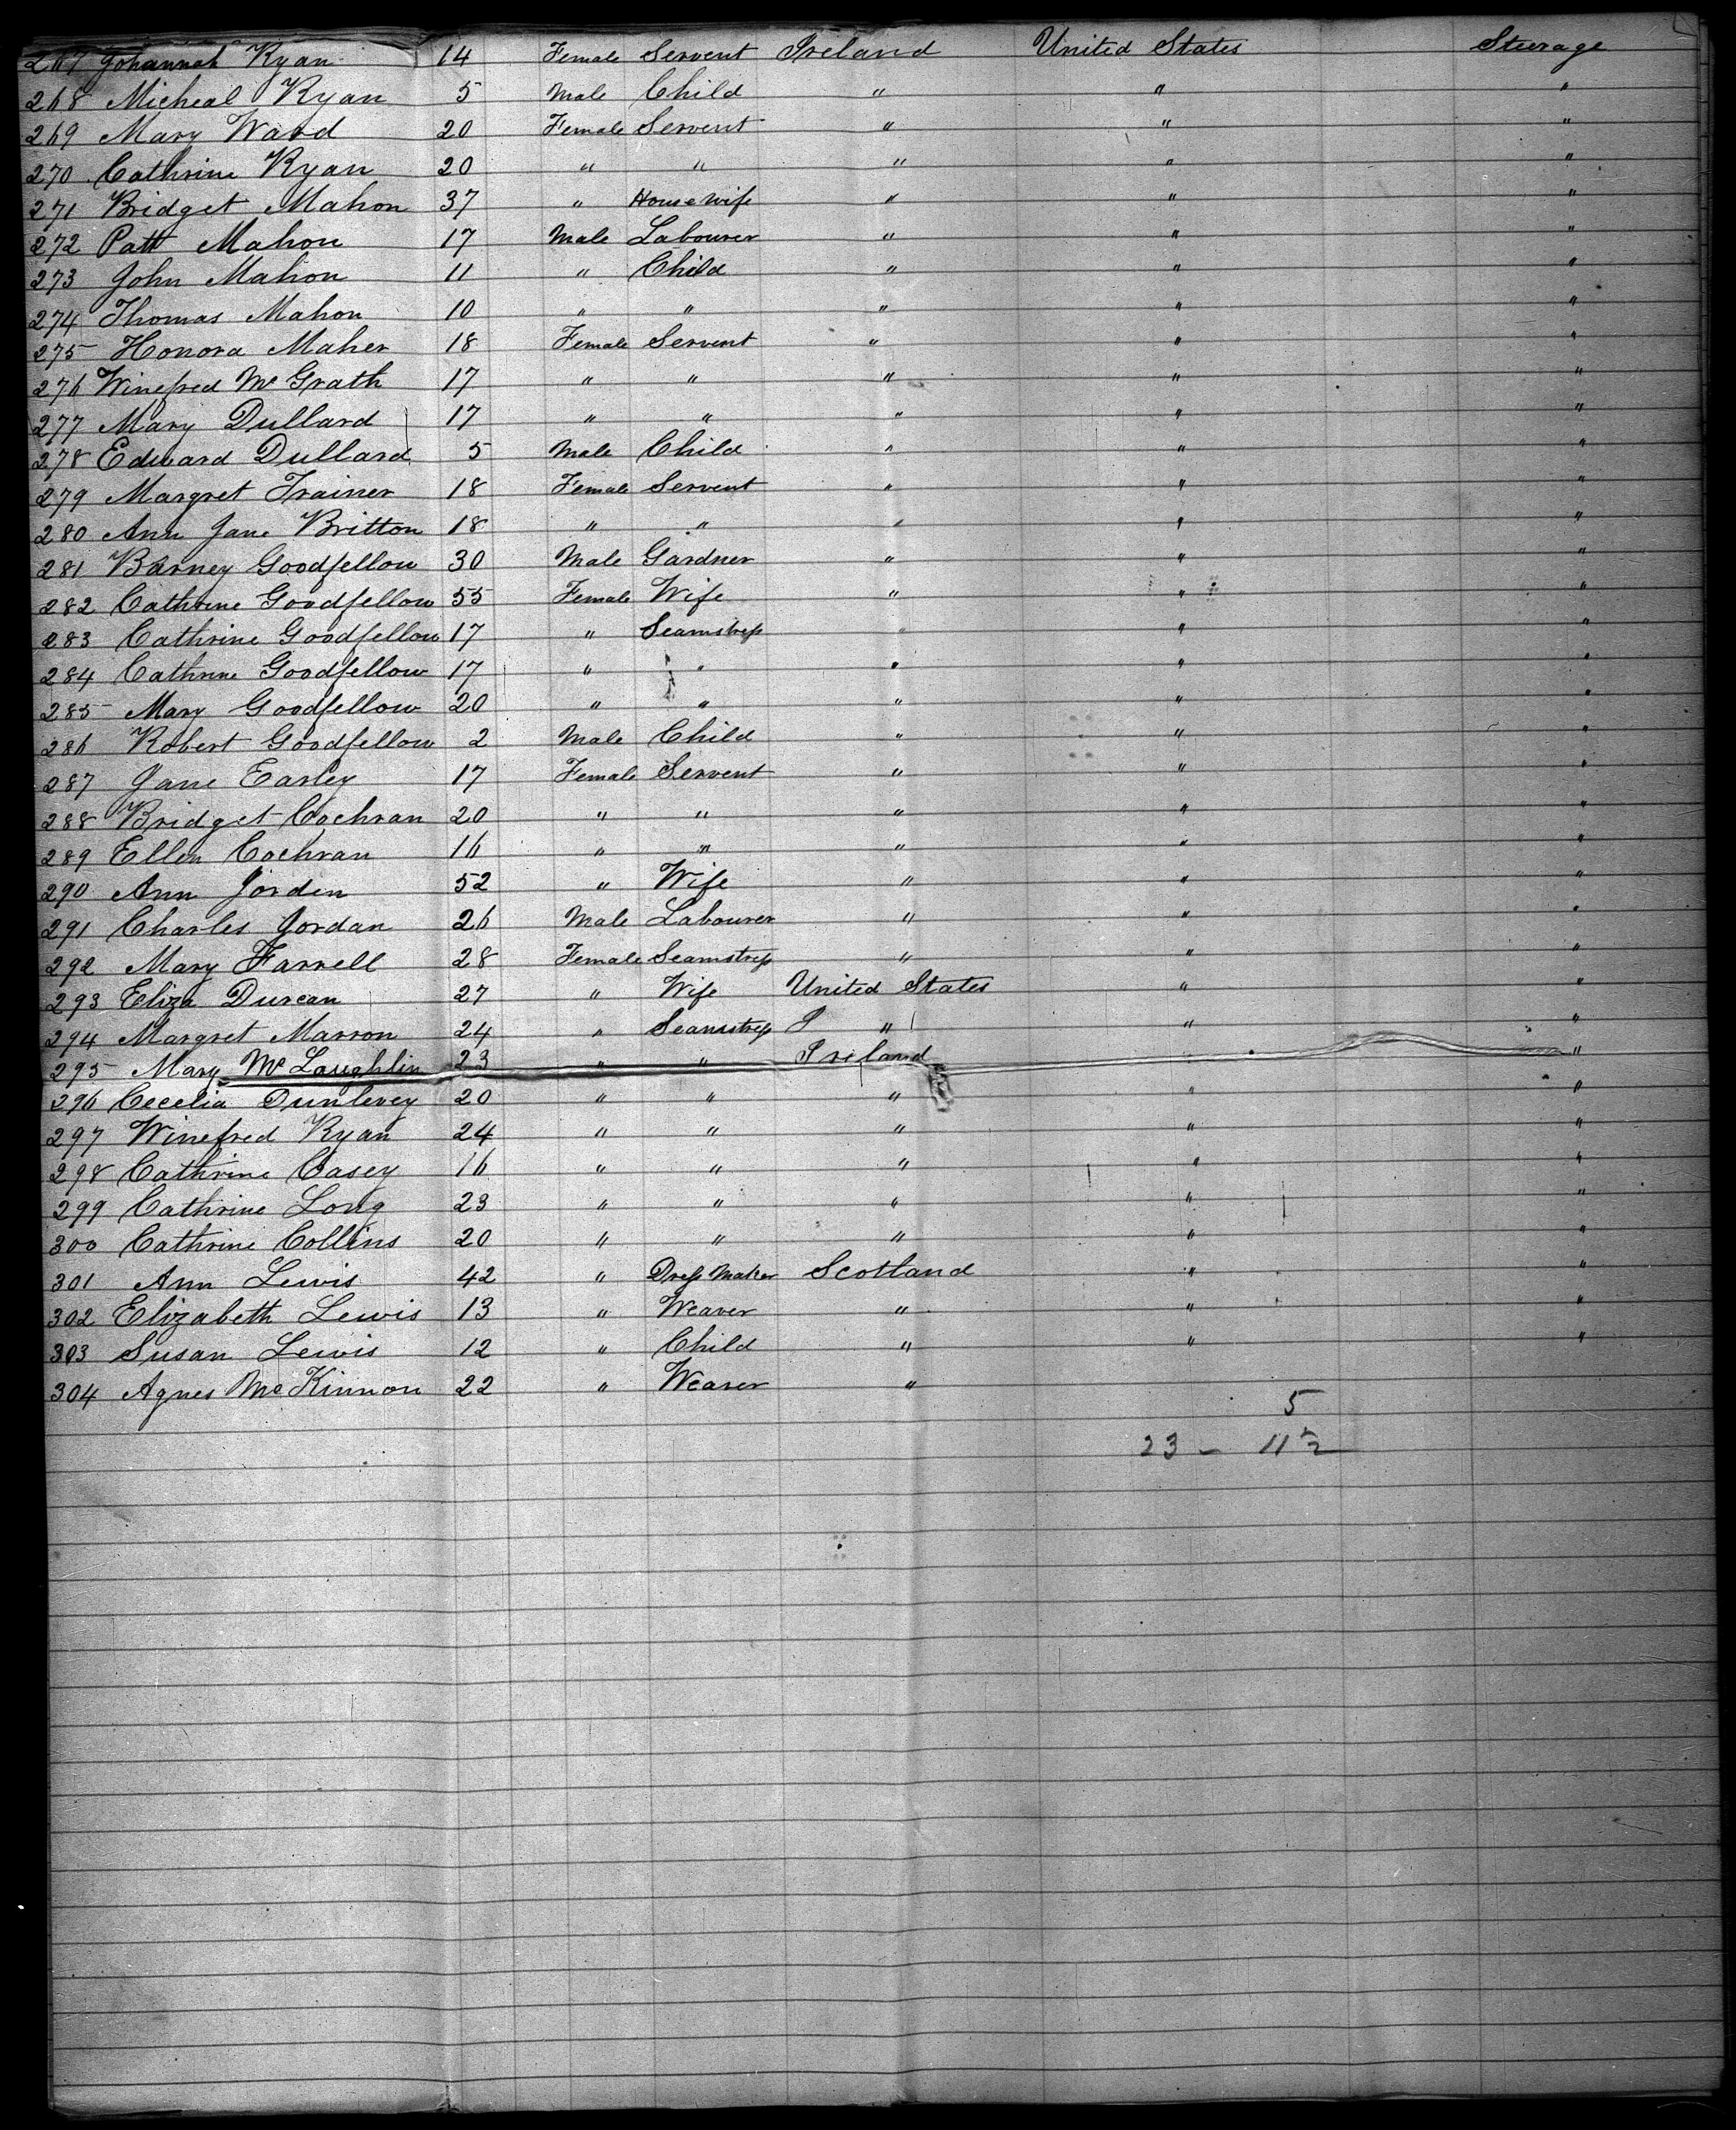 267 Johannah Ryan 14 Female Servent Ireland United States Steerage
268 Micheal Ryan 5 Male Child " " "
269 Mary Ward 20 Female Servent " " "
270 Cathrine Ryan 20 " " " " "
271 Bridget Mahon 37 " House Wife " " "
272 Patt Mahon 17 Male Labourer " " "
273 John Mahon 11 " Child " " "
274 Thomas Mahon 10 " " " " "
275 Honora Maher 18 Female Servent " " "
276 Winefred McGrath 17 " " " " "
277 Mary Dullard 17 " " " " "
278 Edward Dullard 5 Male Child " " "
279 Margret Trainer 18 Female Servent " " "
280 Ann Jane Britton 18 " " " " "
281 Barney Goodfellow 30 Male Gardner " " "
282 Cathrine Goodfellow 55 Female Wife " " "
283 Cathrine Goodfellow 17 " Seamstress " " "
284 Cathrine Goodfellow 17 " " " " "
285 Mary Goodfellow 20 " " " " "
286 Robert Goodfellow 2 Male Child " " "
287 Jane Earley 17 Female Servent " " "
288 Bridget Cochran 20 " " " " "
289 Ellen Cochran 16 " " " " "
290 Ann Jorden 52 " Wife " " "
291 Charles Jordan 26 Male Labourer " " "
292 Mary Farrell 28 Female Seamstress " " "
293 Eliza Duncan 27 " Wife United States " "
294 Margret Marron 24 " Seamstress " " "
295 Mary McLaughlin 23 " " Ireland " "
296 Cecelia Dunlevey 20 " " " " "
297 Winefred Ryan 24 " " " " "
298 Cathrine Casey 16 " " " " "
299 Cathrine Long 23 " " " " "
300 Cathrine Collins 20 " " " " "
301 Ann Lewis 42 " Dress Maker Scotland " "
302 Elizabeth Lewis 13 " Weaver " " "
303 Susan Lewis 12 " Child " " "
304 Agnes McKinnon 22 " Weaver "
5
23 – 11½